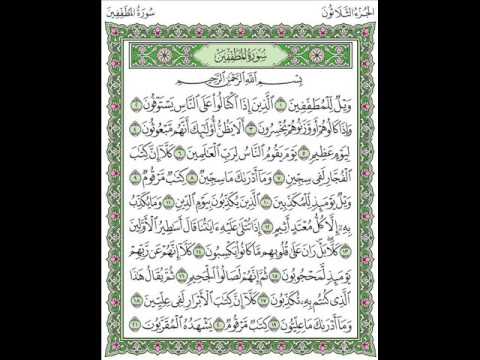 سُورَةُ المُطَفِّفِين الجُزْءُ الثَّلَاثُونَ
سُورَةُ المُطَفِّفِين
بِسْمِ اللَّهِ الرَّحْمَٰنِ الرَّحِيمِ
وَيْلٌ لِّلْمُطَفِّفِينَ ١ الَّذِينَ إِذَا اكْتَالُوا عَلَى النَّاسِ يَسْتَوْفُونَ ٢
وَإِذَا كَالُوهُمْ أَو وَّزَنُوهُمْ يُخْسِرُونَ ٣ أَلَا يَظُنُّ أُولَٰئِكَ أَنَّهُم مَّبْعُوثُونَ ٤
لِيَوْمٍ عَظِيمٍ ٥ يَوْمَ يَقُومُ النَّاسُ لِرَبِّ الْعَالَمِينَ ٦ كَلَّا إِنَّ كِتَابَ
الْفُجَّارِ لَفِي سِجِّينٍ ٧ وَمَا أَدْرَاكَ مَا سِجِّينٌ ٨ كِتَابٌ مَّرْقُومٌ ٩
وَيْلٌ يَوْمَئِذٍ لِّلْمُكَذِّبِينَ ١٠ الَّذِينَ يُكَذِّبُونَ بِيَوْمِ الدِّينِ ١١ وَمَا يُكَذِّبُ
بِهِ إِلَّا كُلُّ مُعْتَدٍ أَثِيمٍ ١٢ إِذَا تُتْلَىٰ عَلَيْهِ آيَاتُنَا قَالَ أَسَاطِيرُ الْأَوَّلِينَ
١٣ كَلَّا بَلْ رَانَ عَلَىٰ قُلُوبِهِم مَّا كَانُوا يَكْسِبُونَ ١٤ كَلَّا إِنَّهُمْ عَن رَّبِّهِمْ
يَوْمَئِذٍ لَّمَحْجُوبُونَ ١٥ ثُمَّ إِنَّهُمْ لَصَالُو الْجَحِيمِ ١٦ ثُمَّ يُقَالُ هَٰذَا
الَّذِي كُنتُم بِهِ تُكَذِّبُونَ ١٧ كَلَّا إِنَّ كِتَابَ الْأَبْرَارِ لَفِي عِلِّيِّينَ ١٨
وَمَا أَدْرَاكَ مَا عِلِّيُّونَ ١٩ كِتَابٌ مَّرْقُومٌ ٢٠ يَشْهَدُهُ الْمُقَرَّبُونَ ٢١